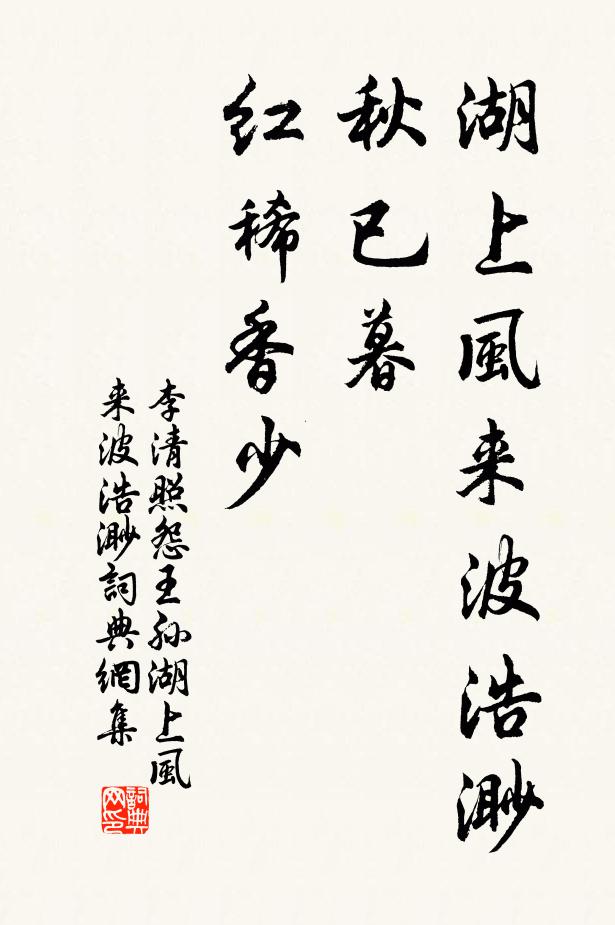 湖上風来波浩渺
秋已暮
红稀香少
李清照怨王孙湖上風
来波浩渺詞典網集
詞典
网印